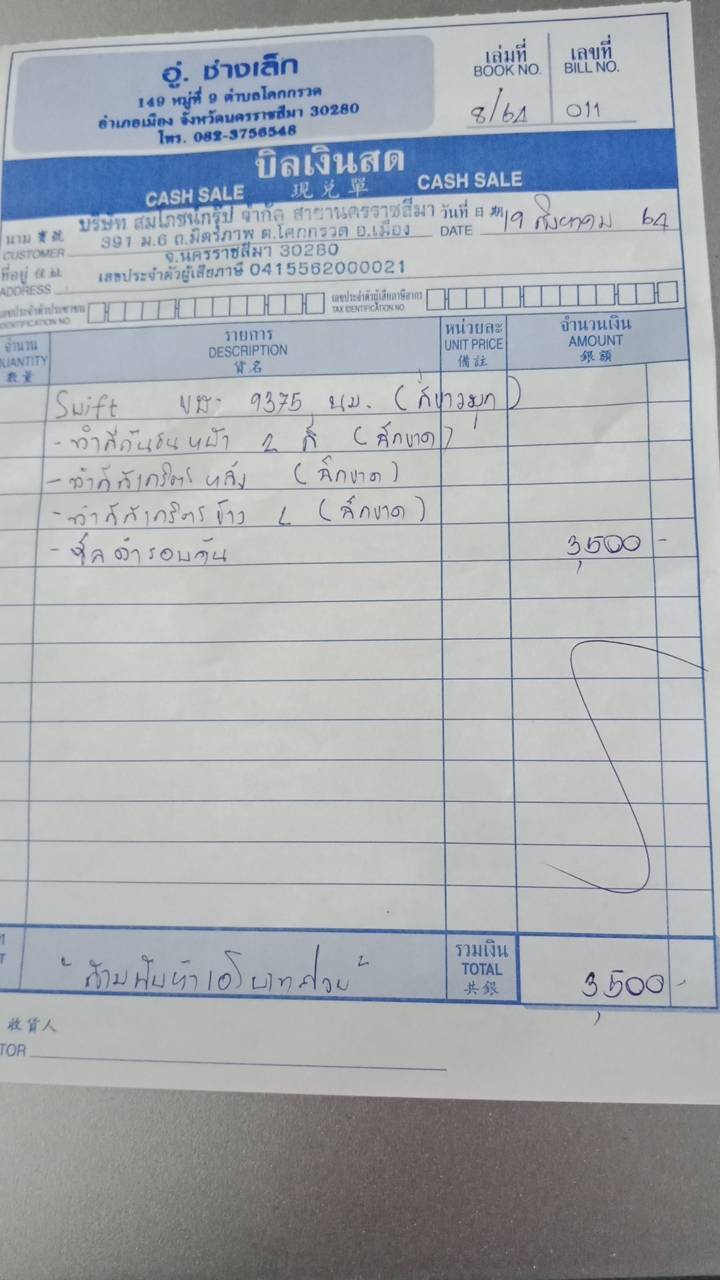 อู่. ช่างเล็ก
149 หมู่ที่ 9 ตำบลโคกกรวด
อำเภอเมือง จังหวัดนครราชสีมา 30280
โทร. 082-3756548
เล่มที่ เลขที่
BOOK NO. BILL NO.
8/64 011
บิลเงินสด
CASH SALE 現兑單 CASH SALE
บริษัท สมโภชน์กรุ๊ป จำกัด สาขานครราชสีมา
391 ม.6 ถ.มิตรภาพ ต.โคกกรวด อ.เมือง
จ.นครราชสีมา 30280
เลขประจำตัวผู้เสียภาษี 0415562000021
นาม
CUSTOMER
ที่อยู่
ADDRESS
วันที่ 19 สิงหาคม 64
DATE
เลขประจำตัวประชาชน
IDENTIFICATION NO.
เลขประจำตัวผู้เสียภาษีอากร
TAX IDENTIFICATION NO.
จำนวน รายการ หน่วยละ จำนวนเงิน
UANTITY DESCRIPTION UNIT PRICE AMOUNT
數量 貨名 備註 銀額
Swift ทบ. 9375 นม. (สีขาวมุก)
- ทำสีกันชนหน้า 2 สี (สีกขาด)
- ทำสีสเกิร์ตหลัง (สีกขาด)
- ทำสีสเกิร์ตข้าง L (สีกขาด)
รอบคัน 3,500 -
"สามพันห้าร้อยบาทถ้วน"
รวมเงิน
TOTAL 3,500 -
共銀
收貨人
TOR